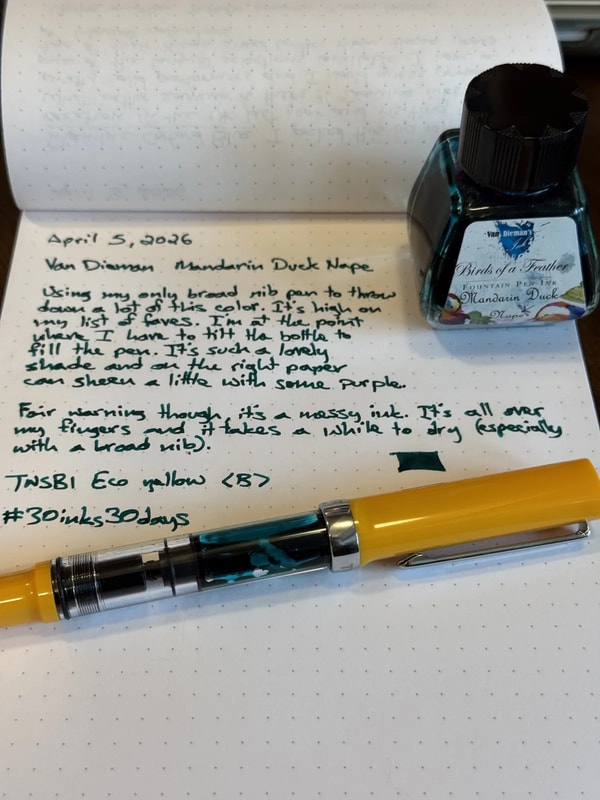 April 5, 2026
Van Dieman Mandarin Duck Nape
Using my only broad nib pen to throw
down a lot of this color. It's high on
my list of faves. I'm at the point
where I have to tilt the bottle to
fill the pen. It's such a lovely
shade and on the right paper
can sheen a little with some purple.
Fair warning though, it's a messy ink. It's all over
my fingers and it takes a while to dry (especially
with a broad nib).
TWSBI Eco yellow <B>
#30inks30days
Van Dieman's
Ink
Birds of a Feather
FOUNTAIN PEN INK
Mandarin Duck
Nape